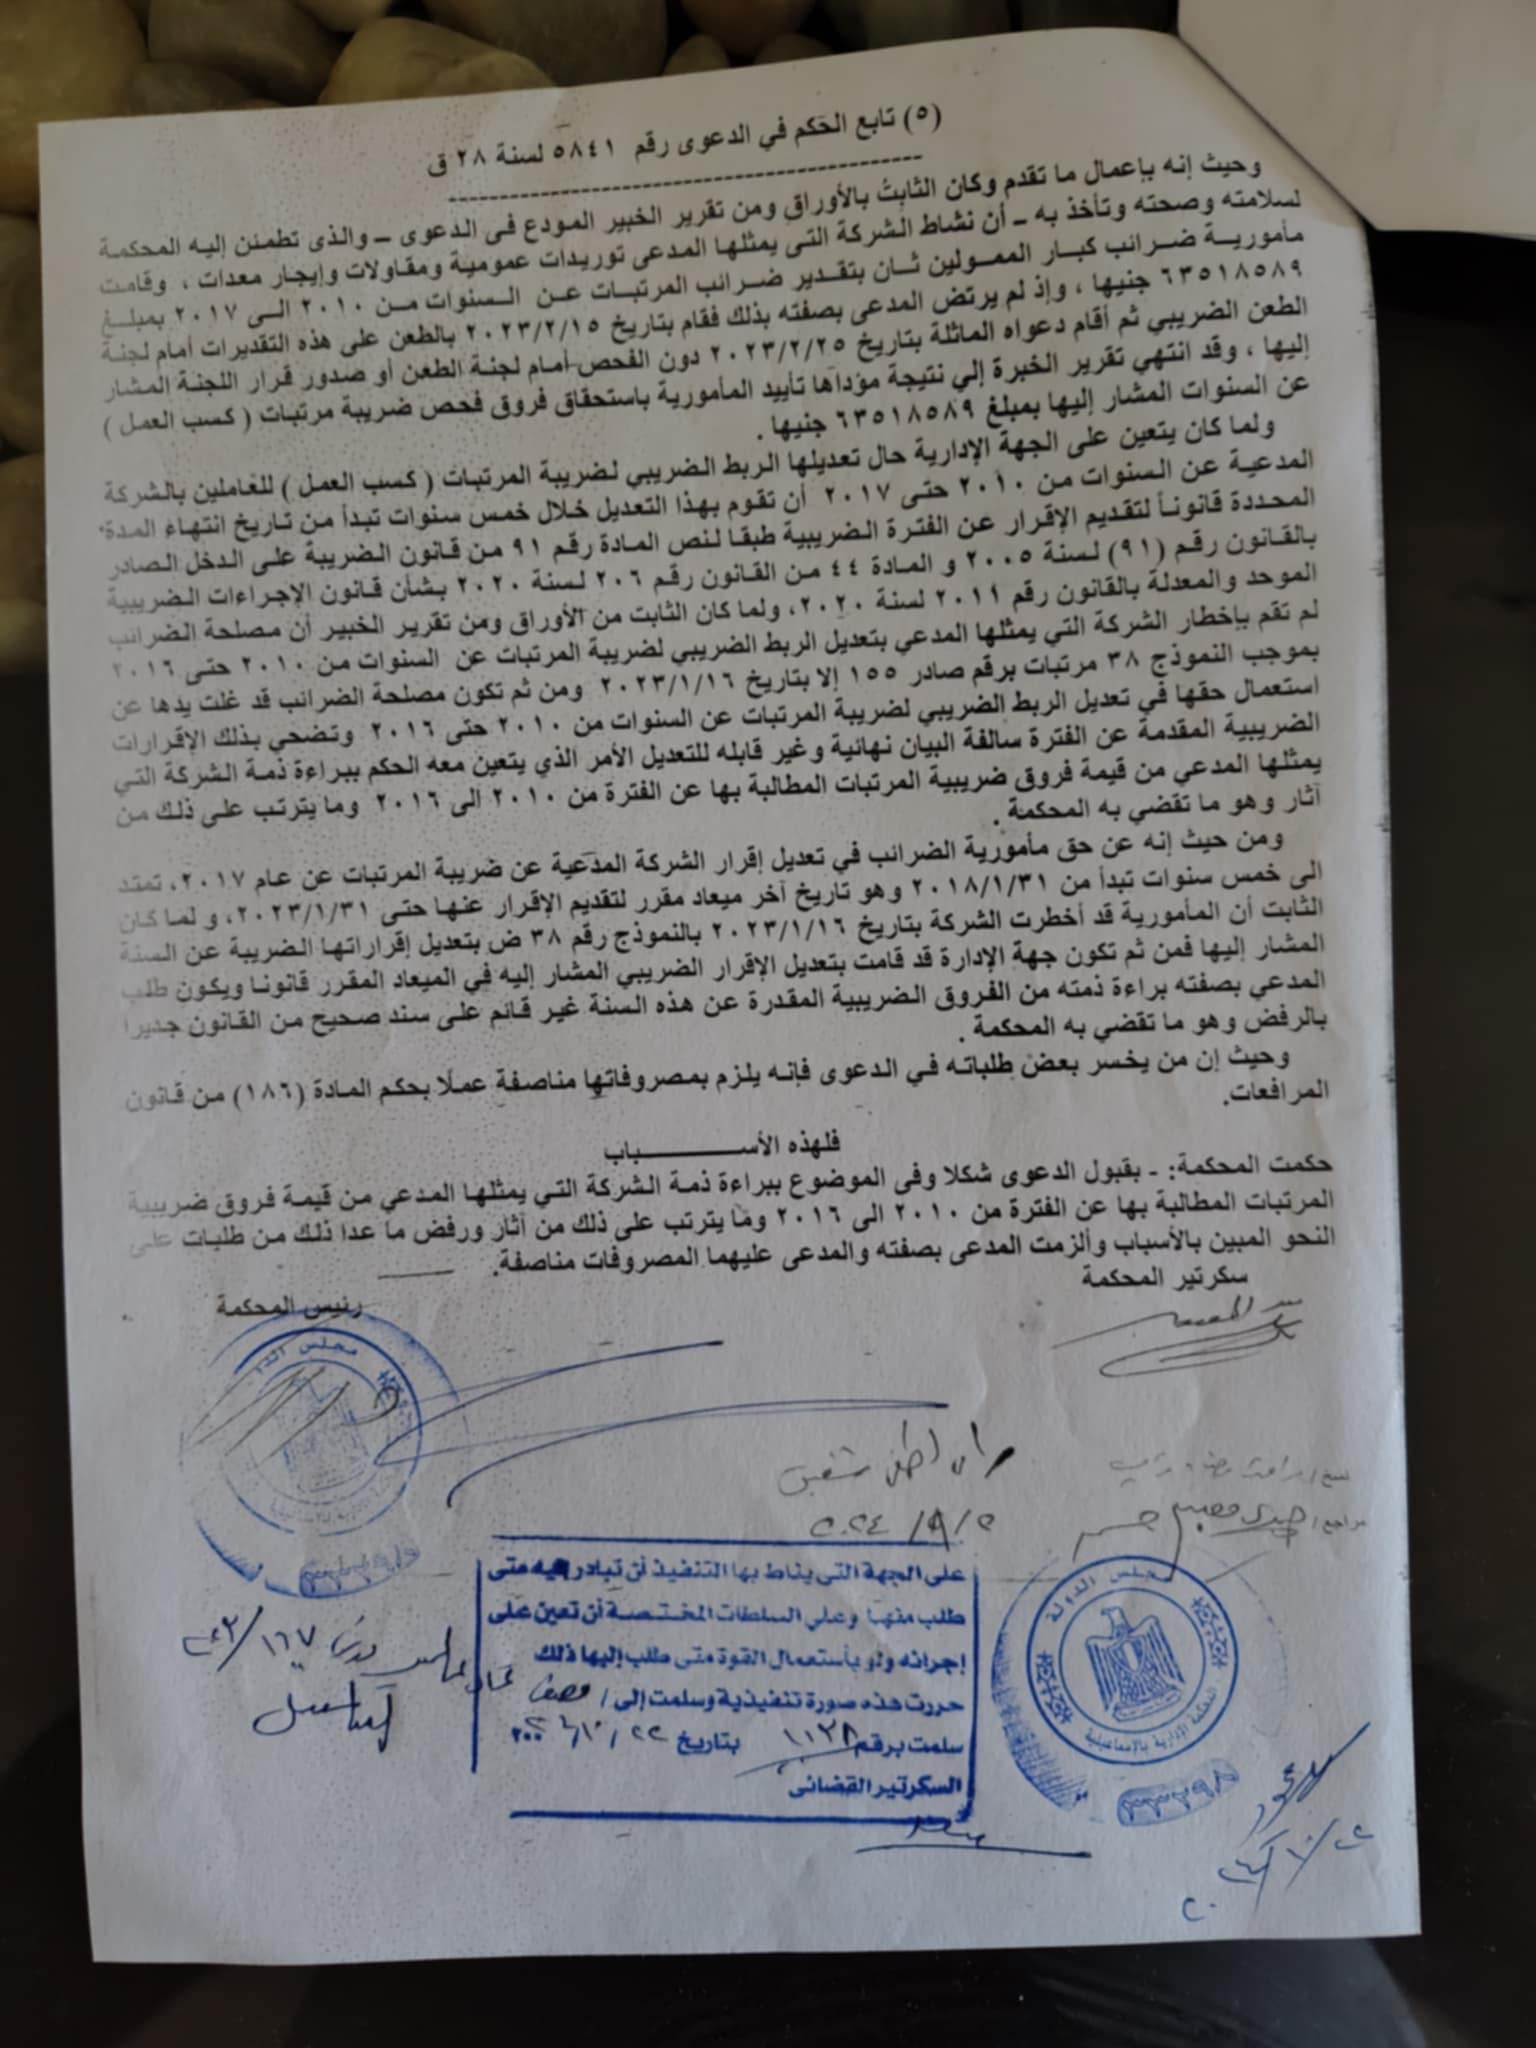 (٥) تابع الحكم في الدعوى رقم ٥٨٤١ لسنة ٢٨ ق
وحيث إنه بإعمال ما تقدم وكان الثابت بالأوراق ومن تقرير الخبير المودع فى الدعوى – والذى تطمئن إليه المحكمة
لسلامته وصحته وتأخذ به – أن نشاط الشركة التى يمثلها المدعى توريدات عمومية ومقاولات وإيجار معدات ، وقامت
مأمورية ضرائب كبار الممولين ثان بتقدير ضرائب المرتبات عن السنوات من ٢٠١٠ الى ٢٠١٧ بمبلغ
٦٣٥١٨٥٨٩ جنيها ، وإذ لم يرتض المدعى بصفته بذلك فقام بتاريخ ٢٠٢٣/٢/١٥ بالطعن على هذه التقديرات أمام لجنة
الطعن الضريبي ثم أقام دعواه الماثلة بتاريخ ٢٠٢٣/٢/٢٥ دون الفحص أمام لجنة الطعن أو صدور قرار اللجنة المشار
إليها ، وقد انتهي تقرير الخبرة إلي نتيجة مؤداها تأييد المأمورية باستحقاق فروق فحص ضريبة مرتبات ( كسب العمل )
عن السنوات المشار إليها بمبلغ ٦٣٥١٨٥٨٩ جنيها .
ولما كان يتعين على الجهة الإدارية حال تعديلها الربط الضريبي لضريبة المرتبات ( كسب العمل ) للعاملين بالشركة
المدعية عن السنوات من ٢٠١٠ حتى ٢٠١٧ أن تقوم بهذا التعديل خلال خمس سنوات تبدأ من تاريخ انتهاء المدة
المحددة قانوناً لتقديم الإقرار عن الفترة الضريبية طبقا لنص المادة رقم ٩١ من قانون الضريبة على الدخل الصادر
بالقانون رقم (٩١) لسنة ٢٠٠٥ و المادة ٤٤ من القانون رقم ٢٠٦ لسنة ٢٠٢٠ بشأن قانون الإجراءات الضريبية
الموحد والمعدلة بالقانون رقم ٢٠١١ لسنة ٢٠٢٠، ولما كان الثابت من الأوراق ومن تقرير الخبير أن مصلحة الضرائب
لم تقم بإخطار الشركة التي يمثلها المدعي بتعديل الربط الضريبي لضريبة المرتبات عن السنوات من ٢٠١٠ حتى ٢٠١٦
بموجب النموذج ٣٨ مرتبات برقم صادر ١٥٥ إلا بتاريخ ٢٠٢٣/١/١٦ ومن ثم تكون مصلحة الضرائب قد غلت يدها عن
استعمال حقها في تعديل الربط الضريبي لضريبة المرتبات عن السنوات من ٢٠١٠ حتى ٢٠١٦ وتضحي بذلك الإقرارات
الضريبية المقدمة عن الفترة سالفة البيان نهائية وغير قابله للتعديل الأمر الذي يتعين معه الحكم ببراءة ذمة الشركة التي
يمثلها المدعي من قيمة فروق ضريبية المرتبات المطالبة بها عن الفترة من ٢٠١٠ الى ٢٠١٦ وما يترتب على ذلك من
آثار وهو ما تقضي به المحكمة .
ومن حيث إنه عن حق مأمورية الضرائب في تعديل إقرار الشركة المدعية عن ضريبة المرتبات عن عام ٢٠١٧، تمتد
الى خمس سنوات تبدأ من ٢٠١٨/١/٣١ وهو تاريخ آخر ميعاد مقرر لتقديم الإقرار عنها حتى ٢٠٢٣/١/٣١، و لما كان
الثابت أن المأمورية قد أخطرت الشركة بتاريخ ٢٠٢٣/١/١٦ بالنموذج رقم ٣٨ ض بتعديل إقراراتها الضريبة عن السنة
المشار إليها فمن ثم تكون جهة الإدارة قد قامت بتعديل الإقرار الضريبي المشار إليه في الميعاد المقرر قانونا ويكون طلب
المدعي بصفته براءة ذمته من الفروق الضريبية المقدرة عن هذه السنة غير قائم على سند صحيح من القانون جديرا
بالرفض وهو ما تقضي به المحكمة .
وحيث إن من يخسر بعض طلباته في الدعوى فإنه يلزم بمصروفاتها مناصفة عملًا بحكم المادة (١٨٦) من قانون
المرافعات.
فلهذه الأســـــــباب
حكمت المحكمة: - بقبول الدعوى شكلا وفى الموضوع ببراءة ذمة الشركة التي يمثلها المدعي من قيمة فروق ضريبية
المرتبات المطالبة بها عن الفترة من ٢٠١٠ الى ٢٠١٦ وما يترتب على ذلك من آثار ورفض ما عدا ذلك من طلبات على
النحو المبين بالأسباب وألزمت المدعى بصفته والمدعى عليهما المصروفات مناصفة.
سكرتير المحكمة
رئيس المحكمة
مجلس الدولة
على الجهة التى يناط بها التنفيذ أن تبادر إليه متى
طلب منها وعلى السلطات المختصة أن تعين على
إجرائه ولو بأستعمال القوة متى طلب إليها ذلك
حررت هذه صورة تنفيذية وسلمت إلى /
سلمت برقم ١١٣٨ بتاريخ
السكرتير القضائى
مجلس الدولة
المحكمة الإدارية بالإسماعيلية